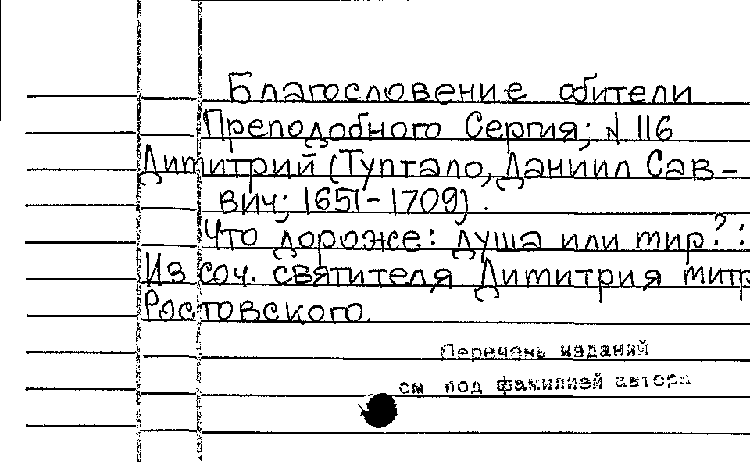 Благословение обители
Преподобного Сергия; № 116
Димитрий (Туптало, Даниил Сав-
вич; 1651-1709).
Что дороже: душа или мир?:
Из соч. святителя Димитрия митр
Ростовского.
Перечень изданий
см под фамилией автора